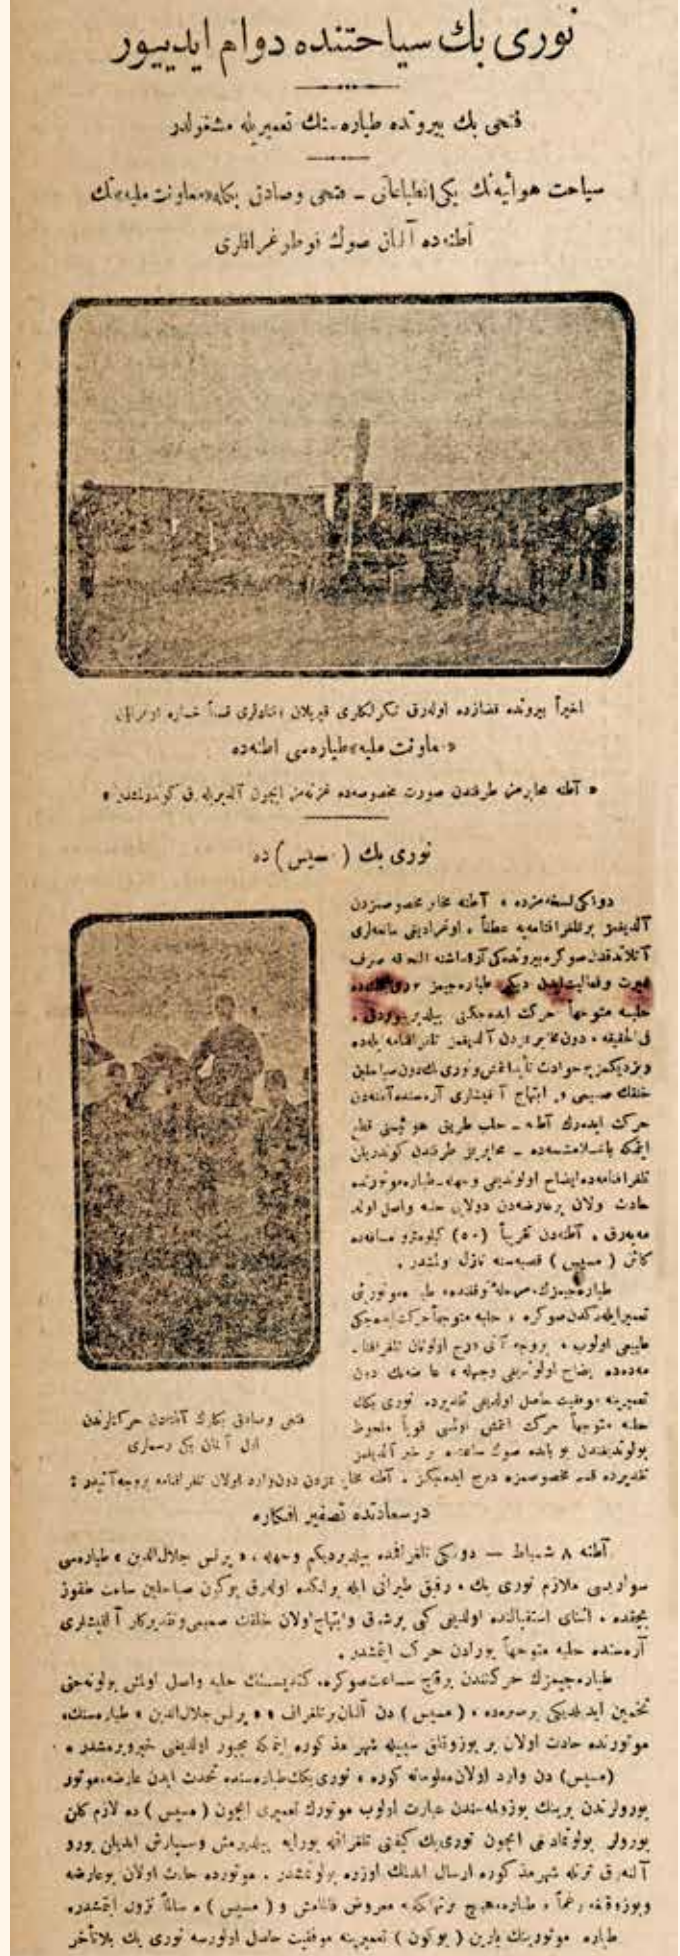 نوری بك سیاحتنده دوام ایدییور
فتحی بك بیروتده طیاره‌سنك تعمیریله مشغولدر
سیاحت هوائیه‌نك یكی انطباعاتی ـ فتحی وصادق بكله «معاونت ملیه»نك
آطنه‌ده آلنان صوك فوطوغرافلری
اخیراً بیروتده قضازده اوله‌رق تكرلكلری قیریلان قنادلری قسماً خساره اوغرایان
«معاونت ملیه» طیاره‌سی اطنه‌ده
« آطنه مخابرمز طرفندن صورت مخصوصه‌ده غزته‌مز ایچون آلدیریله‌رق كوندرلمشدر »
نوری بك ( مسیس ) ده
دونكی نسخه‌مزده ، آطنه مخابر مخصوصمزدن
آلدیغمز برتلغرافنامه‌یه عطفاً ، اوغرادیغی مانعه‌لری
آكلاتدقدن صوكره بیروتده‌كی آرقداشنه التحاقه صرف
غیرت وفعالیت ایدن دیكر طیاره‌جیمز نوری بكك‌ده
حلبه متوجهاً حركت ایده‌جكنی بیلدیرییوردق .
فی‌الحقیقه ، دون مخابرمزدن آلدیغمز تلغرافنامه بزه
ویردیكمز بو حوادثی تأیید ایتمش ونوری بك دون صباحلین
خلقك صمیمی و ابتهاج آلقیشلری آره‌سنده آطنه‌دن
حركت ایده‌رك آطنه ـ حلب طریق هوائیسنی قطع
ایتمكه باشلامشسه‌ده ـ مخابریمز طرفندن كوندریلن
تلغرافنامه‌ده ایضاح اولوندیغی وجهله ـ طیاره موتورنده
حادث اولان برعارضه‌دن دولایی حلبه واصل اوله
مه‌یه‌رق ، آطنه‌دن تقریباً (٥٠) كیلومترو مسافه‌ده
كائن ( مسیس ) قصبه‌سنه نازل اولمشدر .
تعمیر ایله‌دكدن صوكره ، حلبه متوجهاً حركت ایده‌جكی
طبیعی اولوب ، بروجه آتی درج اولونان تلغرافنا‌ـ
مه‌ده‌ده ایضاح اولوندیغی وجهله ، عارضه‌نك دون
تعمیرینه موفقیت حاصل اولدیغی تقدیرده نوری بكك
حلبه متوجهاً حركت ایتمش اولمسی قویاً ملحوظ
بولوندیغندن بو بابده صوك ساعتده بر خبر آلدیغمز
تقدیرده قسم مخصوصمزده درج ایده‌جكز . آطنه مخابرمزدن دون وارد اولان تلغرافنامه بروجه آتیدر :
فتحی وصادق بكلرك آطنه‌دن حركتلرندن
اول آلنان یكی رسملری
درسعادتده تصویر افكاره
آطنه ٨ شباط — دونكی تلغرافمده بیلدیردیكم وجهله ، « پرنس جلال‌الدین » طیاره‌سی
سواریسی ملازم نوری بك ، رفیق طیرانی ایله برلكده اوله‌رق بوكون صباحلین ساعت طقوز
بچقده ، اثنای استقبالنده اولدیغی كبی برشوق وابتهاج اولان خلقك صمیمی وتقدیركار آلقیشلری
آره‌سنده حلبه متوجهاً بورادن حركت ایتمشدر .
طیاره‌جیمزك حركتندن برقاچ ساعت صوكره ، كندیسنك حلبه واصل اولمش بولونه‌جغی
تخمین ایدیلدیكی برصره‌ده ، ( مسیس ) دن آلنان برتلغراف ، « پرنس جلال‌الدین » طیاره‌سنك ،
موتورنده حادث اولان بر بوزوقلق سببیله شهر مذكوره اینمكه مجبور اولدیغنی خبر ویرمشدر .
(مسیس) دن وارد اولان معلوماته كوره ، نوری بكك طیاره‌سنده تحدث ایدن عارضه ، موتور
بورولرندن برینك بوزولمه‌سندن عبارت اولوب موتورك تعمیری ایچون ( مسیس ) ده لازم كلن
بورولر بولونمادیغی ایچون نوری بك كیفیتی تلغرافله بورایه بیلدیرمش وسپارش ایدیلن بورو
آلنه‌رق ترنله شهر مذكوره ارسال ایدلمك اوزره بولونمشدر . موتورده حادث اولان بوعارضه
وبوزوقلغه رغماً ، طیاره هیچ برتهلكه‌یه معروض قالمامش و ( مسیس ) ه سالماً نزول ایتمشدر .
طیاره موتورینك یارین ( بوكون ) تعمیرینه موفقیت حاصل اولورسه نوری بك بلاتأخر